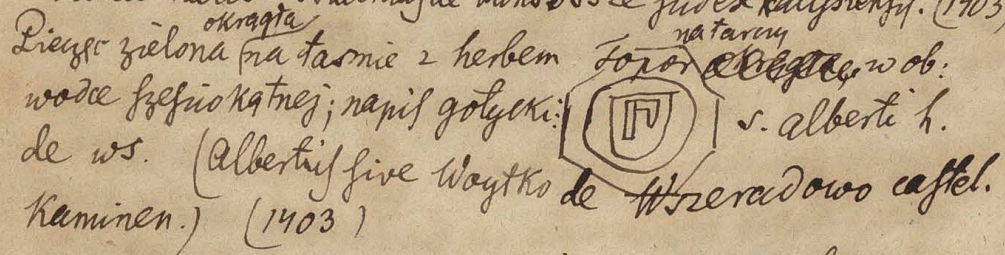 judex kalisiensis. (1403
okrągła
Pieczęć zielona na taśmie z herbem Topor na tarczy w ob:
wodce sześciokątnej; napis gotycki: s. alberti h.
de ws. (Albertus sive Woytko de Wszeradowo castel.
Kaminen.) (1403)